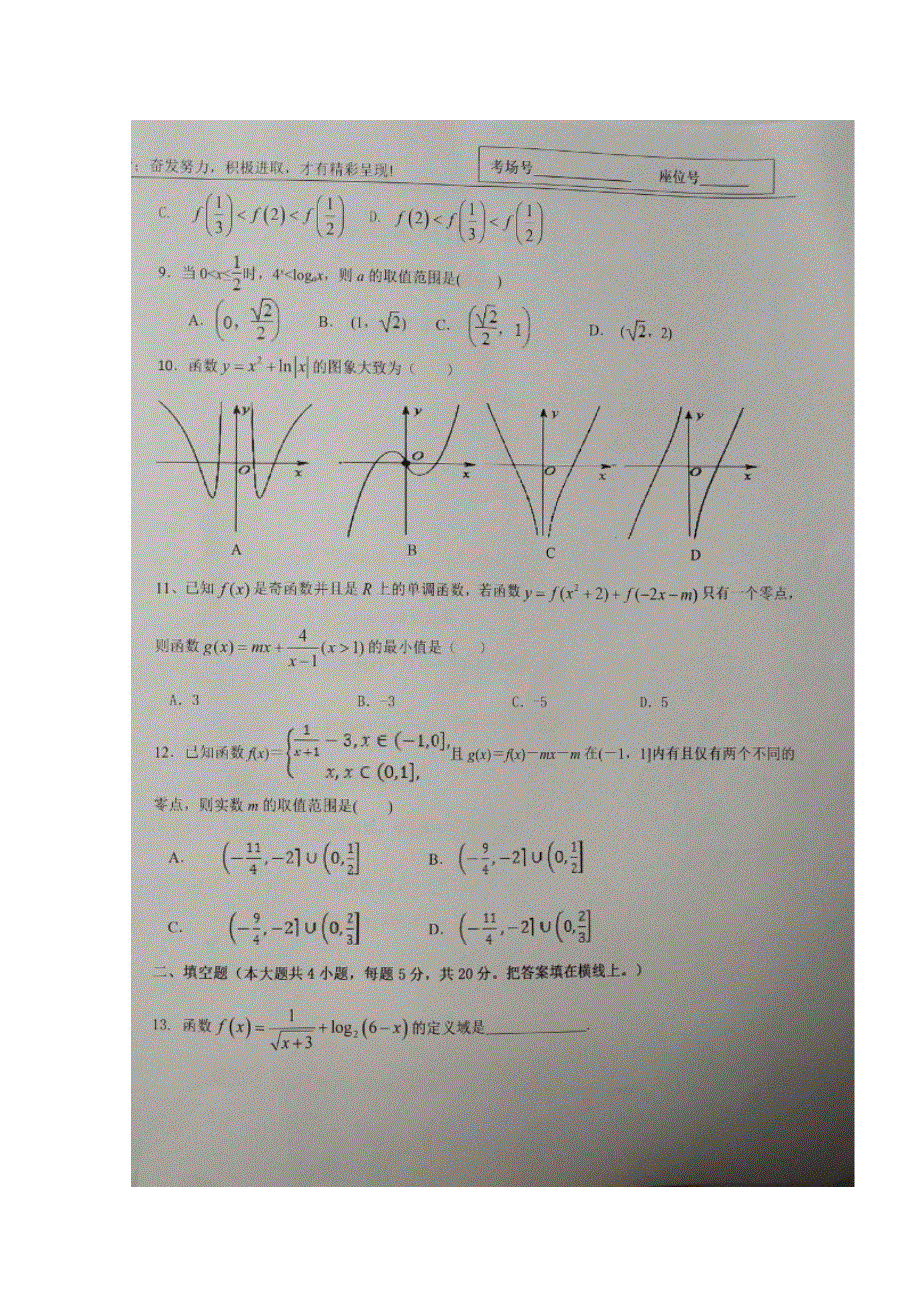 ：奋发努力，积极进取，才有精彩呈现! 考场号________ 座位号______
C. f(1/3)<f(2)<f(1/2) D. f(2)<f(1/3)<f(1/2)
9．当 0<x<1/2时，4ˣ<logₐx，则 a 的取值范围是( )
A．(0，√2/2) B．(1，√2) C．(√2/2，1) D．(√2，2)
10．函数 y=x²+ln|x| 的图象大致为（ ）
y O x y O x y O x y O x
A B C D
11、已知 f(x) 是奇函数并且是 R 上的单调函数，若函数 y=f(x²+2)+f(−2x−m) 只有一个零点，
则函数 g(x)=mx+4/(x−1)(x>1) 的最小值是（ ）
A．3 B．-3 C．-5 D．5
12．已知函数 f(x)＝{1/(x+1)−3,x∈(−1,0], x,x∈(0,1], 且 g(x)＝f(x)－mx－m 在(－1，1]内有且仅有两个不同的
零点，则实数 m 的取值范围是( )
A．(−11/4,−2]∪(0,1/2] B．(−9/4,−2]∪(0,1/2]
C．(−9/4,−2]∪(0,2/3] D．(−11/4,−2]∪(0,2/3]
二、填空题（本大题共 4 小题，每题 5 分，共 20 分。把答案填在横线上。）
13. 函数 f(x)=1/√(x+3)+log₂(6−x) 的定义域是____________.